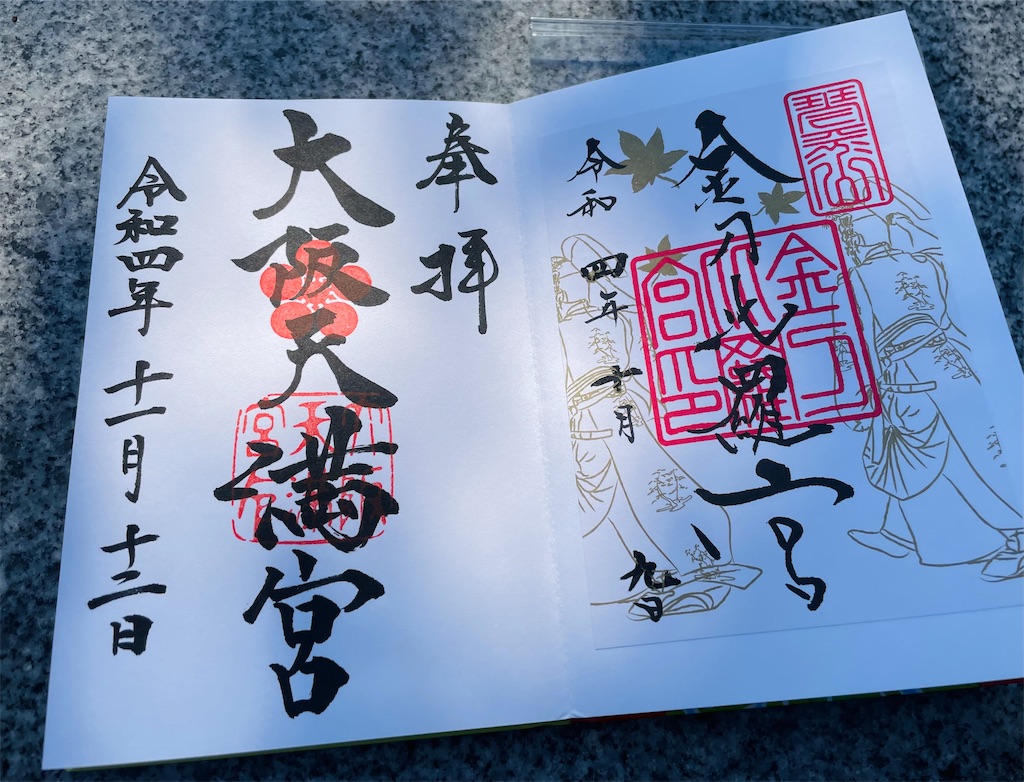 琴平山
金刀比羅宮
金刀
比羅
宮印
令和四年十月九日
奉拝
大阪天満宮
令和四年十一月十二日